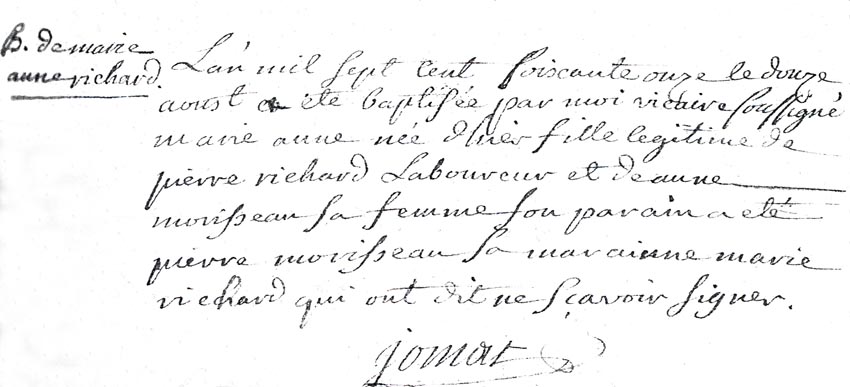 B. de marie
anne richard.
L'an mil sept cent soixante onze le douze
aoust a été baptisée par moi vicaire soussigné
marie anne née d'hier fille legitime de
pierre richard Laboureur et de anne
morisseau sa femme son parain a eté
pierre morisseau sa marainne marie
richard qui ont dit ne sçavoir signer.
jomat